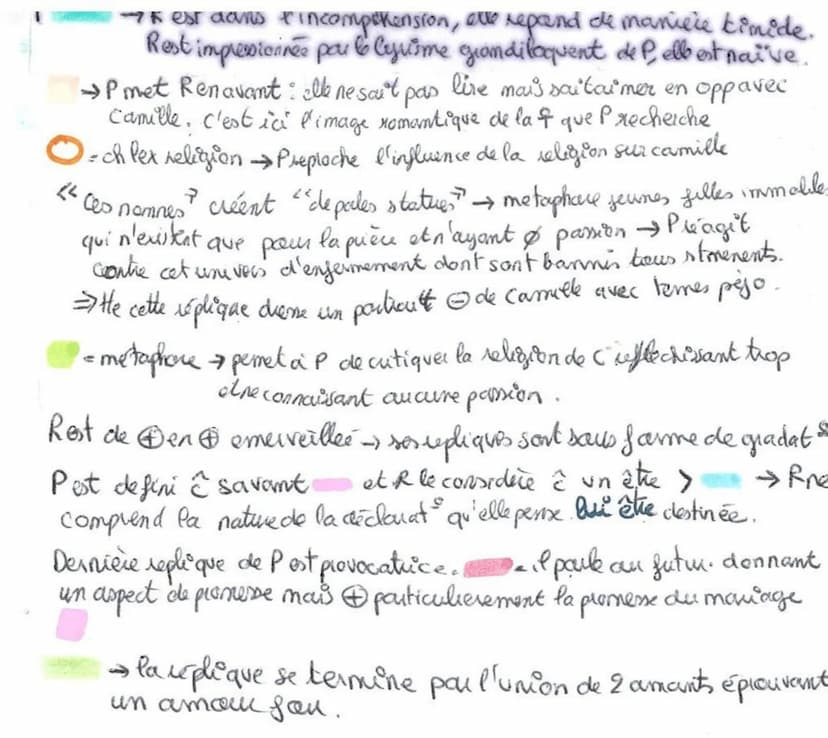 → R est dans l'incompréhension, elle répand de manière timide.
R est impressionnée par le lyrisme grandiloquent de P, elle est naïve.
→ P met R en avant : elle ne sait pas lire mais sait aimer en opp avec
Camille. C'est ici l'image romantique de la ♀ que P recherche
= ch lex religion → P reproche l'influence de la religion sur camille
"Ces nonnes" créent "de pales statues" → metaphore jeunes filles immobiles
qui n'existent que pour la prière et n'ayant ø passion → P réagit
contre cet univers d'enfermement dont sont bannis tous stments.
⇒ tte cette réplique dresse un portrait ⊖ de Camille avec termes péjo.
= métaphore → permet à P de critiquer la religion de C réfléchissant trop
et ne connaissant aucune passion.
R est de ⊕ en ⊕ emerveillée → ses repliques sont sous forme de gradat°s
P est defini ĉ savant et R le considère ĉ un être > → R ne
comprend la nature de la déclarat° qu'elle pense lui être destinée.
Dernière replique de P est provocatrice. = il parle au futur. donnant
un aspect de promesse mais ⊕ particulierement la promesse du mariage
→ la réplique se termine par l'union de 2 amants éprouvant
un amour fou.